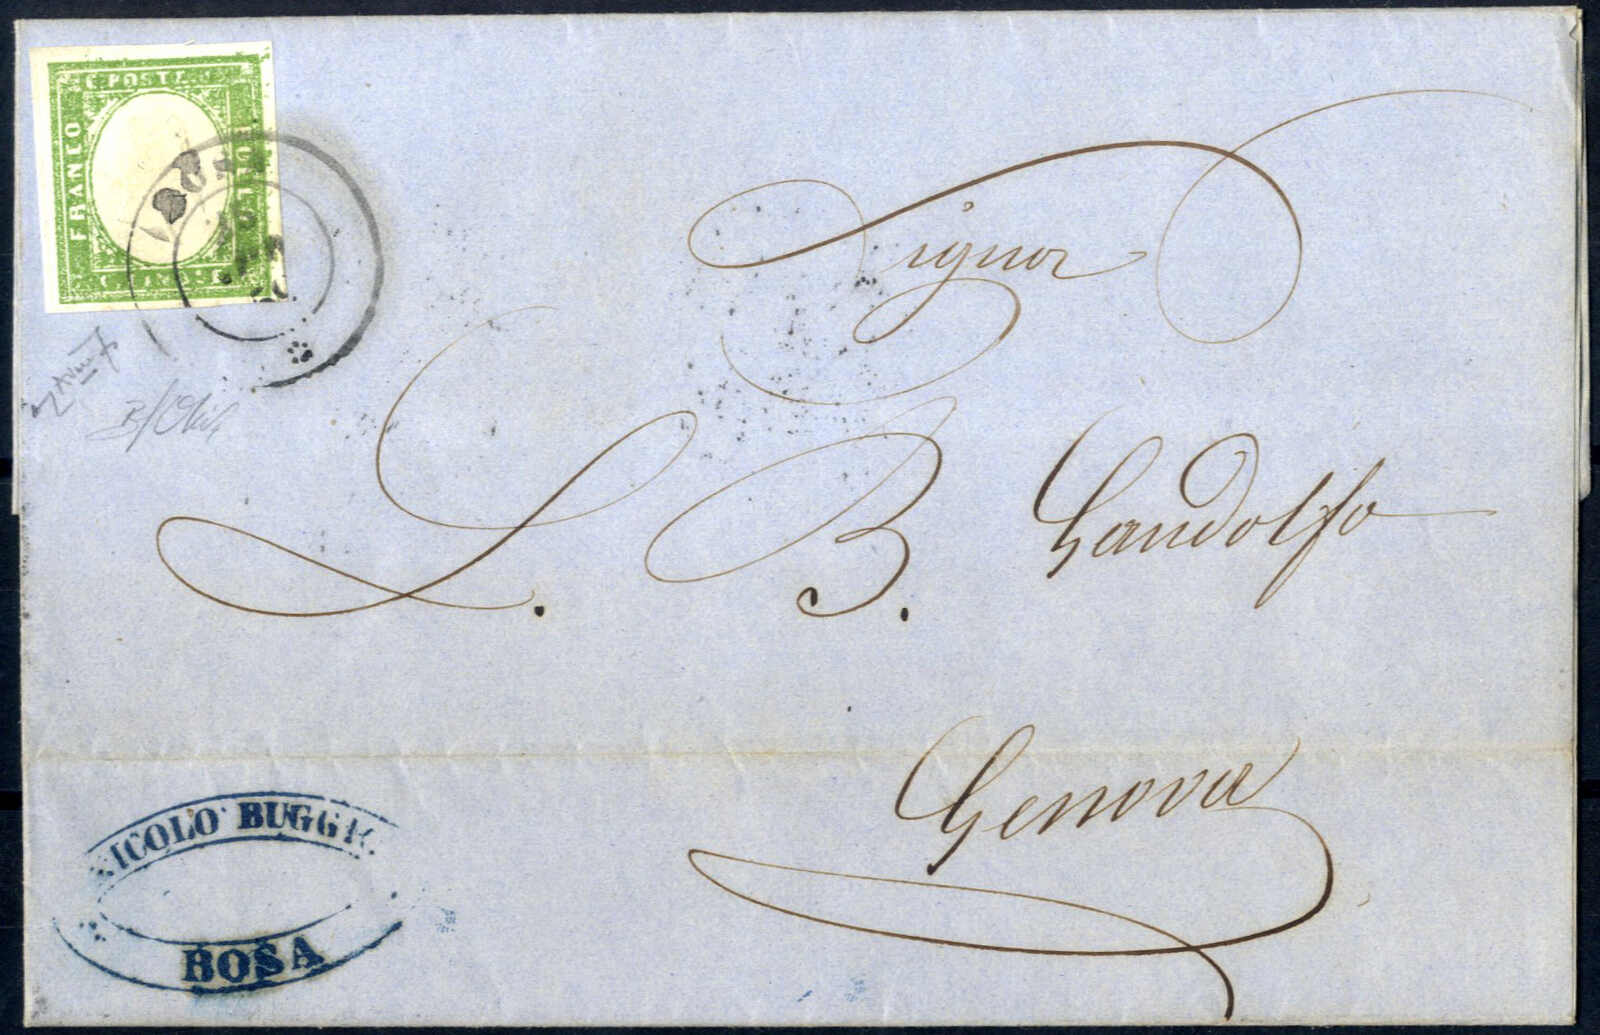 C. POSTE
FRANCO
BOLLO
Signor
L. B. Gandolfo
Genova
NICOLO BUGGIO
BOSA